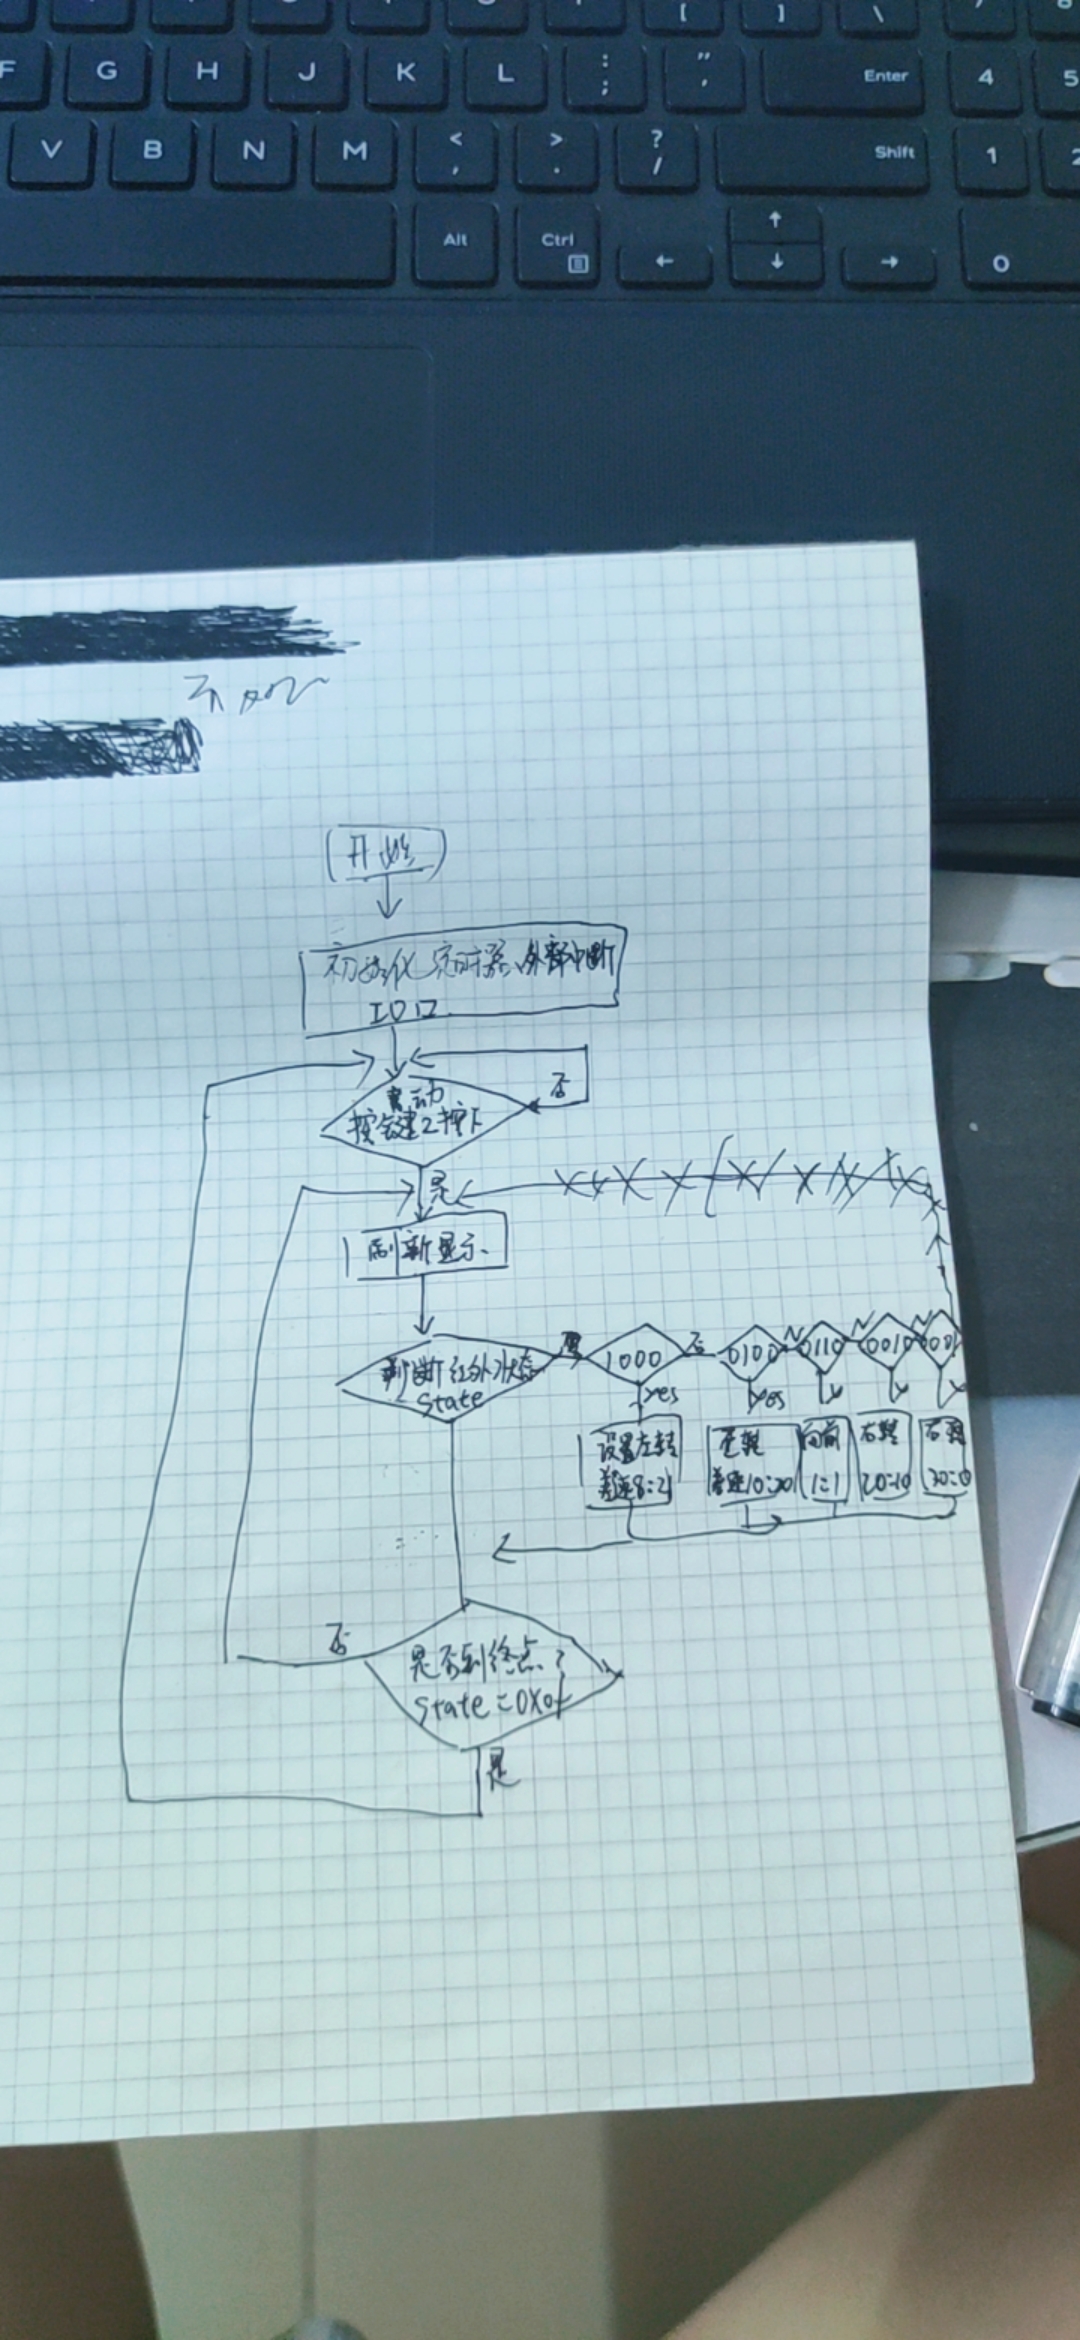 [ ] \
F G H J K L : ; " , Enter 4 5
V B N M < , > . ? / Shift 1 2
Alt Ctrl ← ↑ ↓ → 0
开始
初始化定时器、外部中断
IO口
启动
按键2按下
否
是
刷新显示
判断红外状态
State
1000
否
0100
N
0110
N
0010
N
yes
yes
设置左转
差速8:2
左转
差速10:20
向前
1:1
右转
20:10
右转
30:0
否
是否到终点?
State=0X0f
是